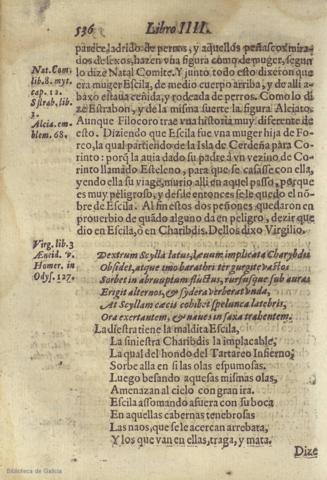 536 Libro IIII.
parece ladrido de perros, y aquellos peñascos mira-
dos de lexos, hazen vna figura como de muger, segun
Nat. Com. lo dize Natal Comite. Y junto todo esto dixeron que
lib. 8. myt. era muger Escila, de medio cuerpo arriba, y de alli a-
cap. 12. baxo estaua ceñida, y rodeada de perros. Como lo di
Strab. lib. ze Estrabon, y de la misma suerte la figura Alciato.
3. Aunque Filocoro trae vna historia muy diferente de
Alcia. em- esto. Diziendo que Escila fue vna muger hija de For-
blem. 68. co, la qual partiendo de la Isla de Cerdeña para Co-
rinto: porq̃ la auia dado su padre à vn vezino de Co-
rinto llamado Esteleno, para que se casasse con ella,
yendo ella su viage, murio alli en aquel passo, porque
es muy peligroso, y desde entonces se le quedo el nõ-
bre de Escila. Al fin estos dos peñones quedaron en
prouerbio de quãdo alguno da en peligro, dezir que
dio en Escila, ò en Charibdis. Dellos dixo Virgilio.
Virg. lib. 3 Dextrum Scylla latus, læuum implicata Charybdis
Æneid. v. Obsidet, atque imo barathri ter gurgite vastos
Homer. in Sorbet in abruptum fluctus, rursusque sub auras
Odys. 127. Erigit alternos, & sydera verberat vnda,
At Scyllam cæcis cohibet spelunca latebris,
Ora exertantem, & naues in saxa trahentem.
La diestra tiene la maldita Escila,
La siniestra Charibdis la implacable,
La qual del hondo del Tartareo Infierno,
Sorbe alla en si las olas espumosas.
Luego besando aquesas mismas olas,
Amenazan al cielo con gran ira.
Escila assomando afuera con su boca
En aquellas cabernas tenebrosas
Las naos, que se le acercan arrebata,
Y los que van en ellas, traga, y mata.
Dize
Biblioteca de Galicia